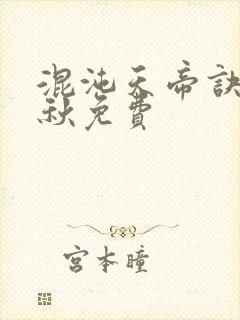 混沌天帝訣
秋免費
宮本瞳